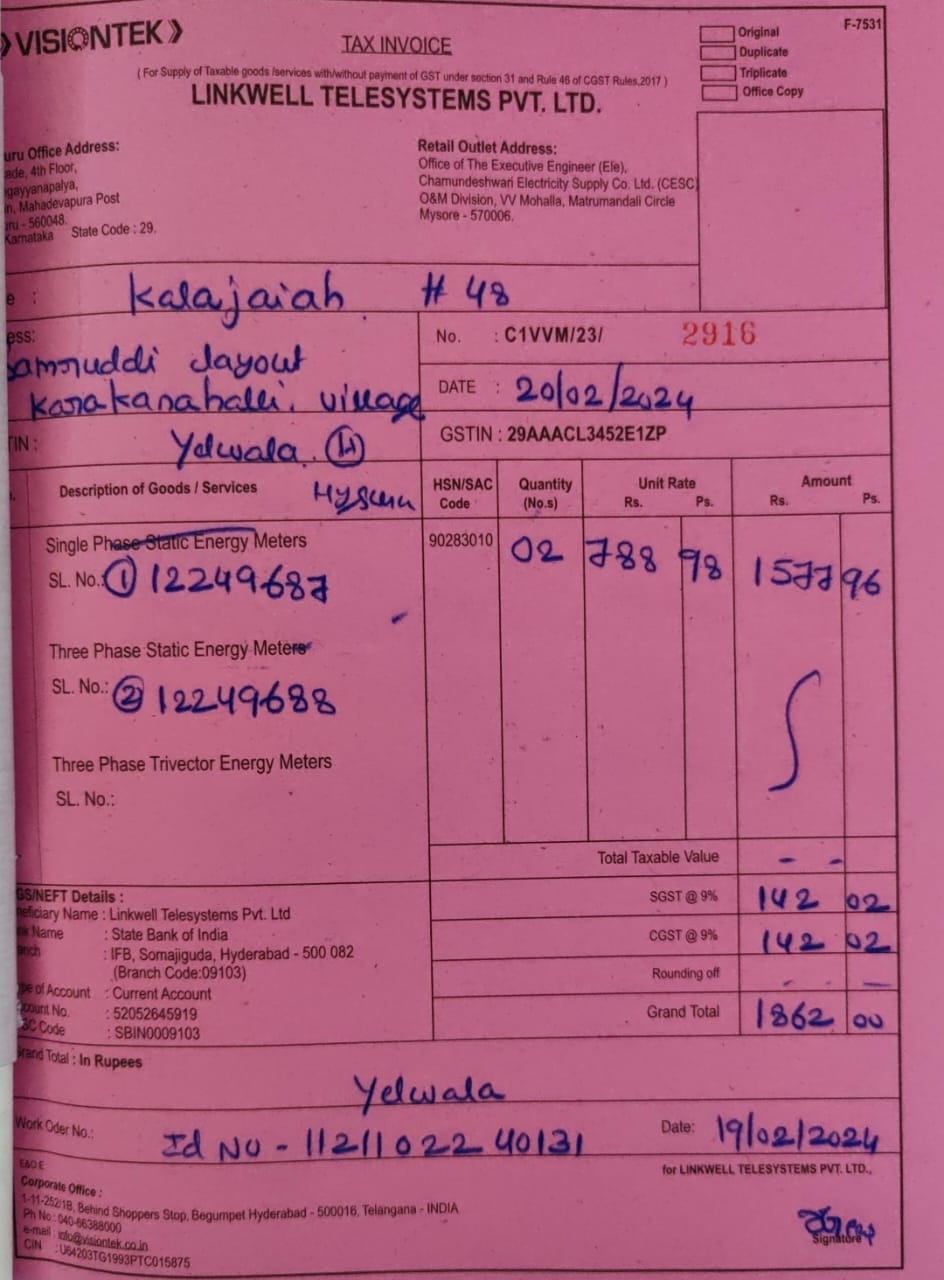 VISIONTEK
TAX INVOICE
F-7531
Original
Duplicate
Triplicate
Office Copy
( For Supply of Taxable goods /services with/without payment of GST under section 31 and Rule 46 of CGST Rules,2017 )
LINKWELL TELESYSTEMS PVT. LTD.
uru Office Address:
ade, 4th Floor,
gayyanapalya,
n, Mahadevapura Post
uru - 560048.
Karnataka State Code : 29.
Retail Outlet Address:
Office of The Executive Engineer (Ele),
Chamundeshwari Electricity Supply Co. Ltd. (CESC)
O&M Division, VV Mohalla, Matrumandali Circle
Mysore - 570006.
e : Kalajaiah # 48
ess:
Samruddi Layout
Karakanahalli, village
TIN : Yelwala. (H)
Mysuru
No. : C1VVM/23/ 2916
DATE : 20/02/2024
GSTIN : 29AAACL3452E1ZP
Description of Goods / Services HSN/SAC Code Quantity (No.s) Unit Rate Rs. Ps. Amount Rs. Ps.
Single Phase Static Energy Meters 90283010 02 788 98 1577 96
SL. No.: ① 12249687
Three Phase Static Energy Meters
SL. No.: ② 12249688
Three Phase Trivector Energy Meters
SL. No.:
Total Taxable Value - -
SGST @ 9% 142 02
CGST @ 9% 142 02
Rounding off - - -
Grand Total 1862 00
GS/NEFT Details :
neficiary Name : Linkwell Telesystems Pvt. Ltd
nk Name : State Bank of India
anch : IFB, Somajiguda, Hyderabad - 500 082
(Branch Code:09103)
pe of Account : Current Account
count No. : 52052645919
SC Code : SBIN0009103
Grand Total : In Rupees
Yelwala
Work Oder No.: Id NO - 11211022 40131
Date: 19/02/2024
E&O E
for LINKWELL TELESYSTEMS PVT. LTD.,
Corporate Office :
1-11-252/1B, Behind Shoppers Stop, Begumpet Hyderabad - 500016, Telangana - INDIA
Ph No : 040-66388000
e-mail : info@visiontek.co.in
CIN : U64203TG1993PTC015875
Signature